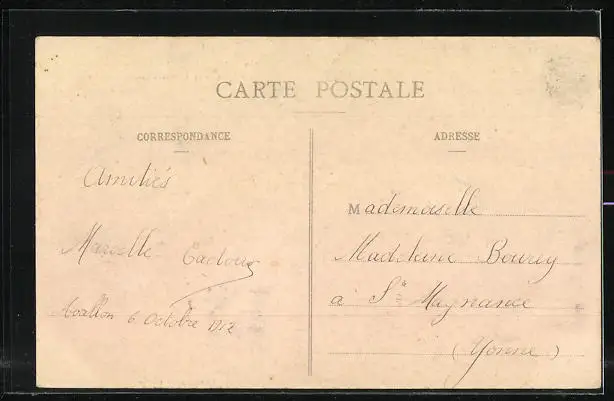 CARTE POSTALE
CORRESPONDANCE
ADRESSE
Amitiés
Marcelle
Avallon 6 Octobre 1912
Mademoiselle
Madeleine
à Ste Magnance
(Yonne)